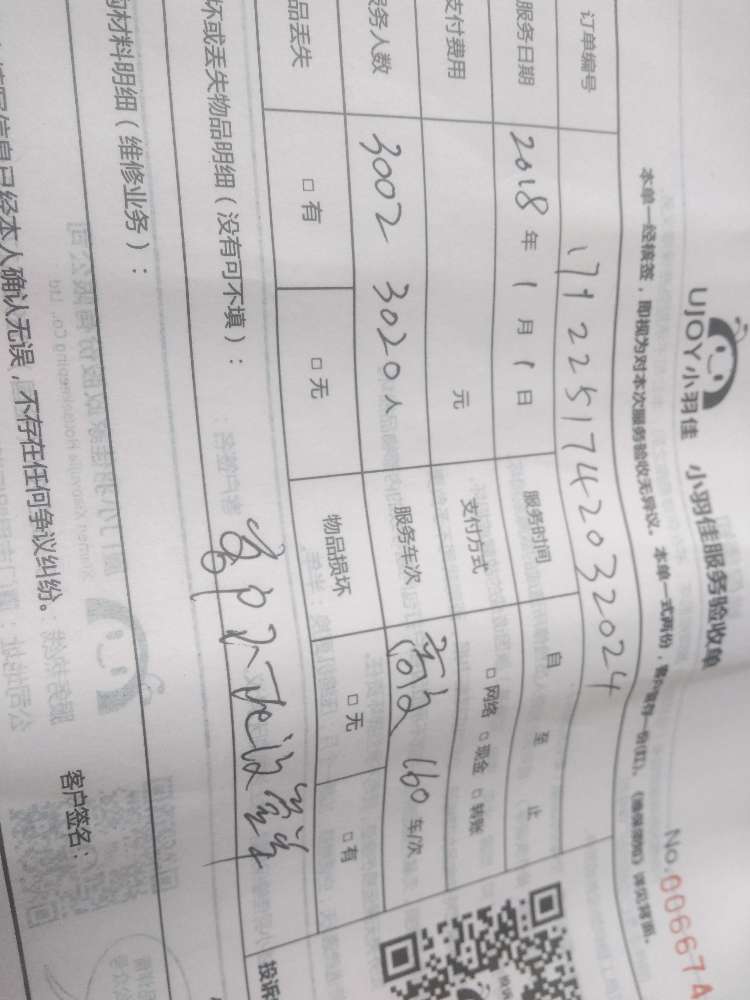 UJOY小羽佳 小羽佳服务验收单
No.006674
本单一经核签，即视为对本次服务验收无异议。本单一式两份，客户留存一份(红)。
订单编号 1712251742032024
服务日期 2018年1月1日 服务时间 自 至 止
支付费用 元 支付方式 □网络 □现金 □转账
服务人数 3002 3020人 服务车次 160车/次
品丢失 □有 □无 物品损坏 □无 □有
坏或丢失物品明细（没有可不填）：
材料明细（维修业务）：
信息已经本人确认无误，不存在任何争议纠纷。
客户签名：
投诉